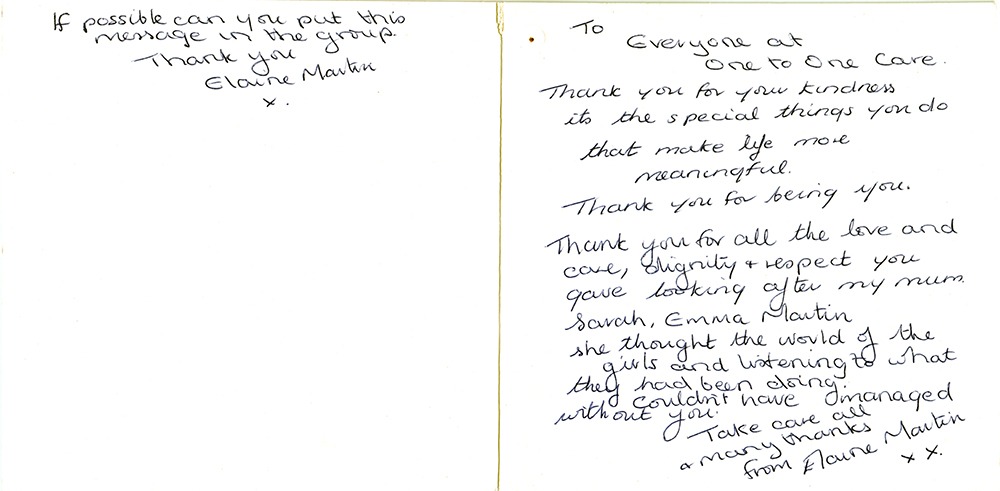 If possible can you put this
message in the group.
Thank you
Elaine Martin
x.
To
Everyone at
One to One Care.
Thank you for your kindness
its the special things you do
that make life more
meaningful.
Thank you for being you.
Thank you for all the love and
care, dignity + respect you
gave looking after my mum.
Sarah, Emma Martin
she thought the world of the
girls and listening to what
they had been doing.
couldn't have managed
without you.
Take care all
& many thanks
from Elaine Martin
x x.